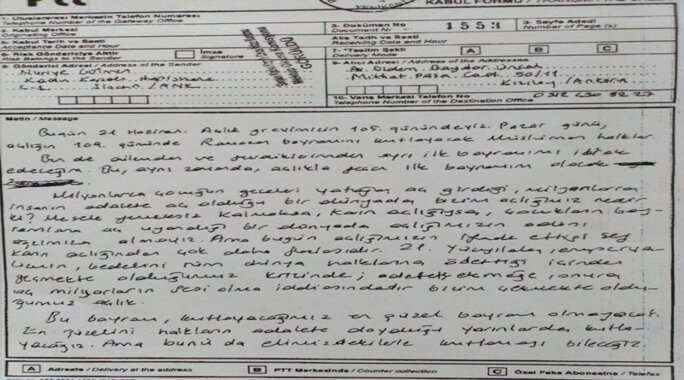 PTT
KABUL FORMU /
1- Uluslararası Merkezin Telefon Numarası
Telephone Number of the Gateway Office
2- Kabul Merkezi
Originating Office
3- Kabul Tarih ve Saati
Acceptance Date and Hour
5- Risk Göndericiye Aittir
Risk Belongs to the Sender
İmza
Signature
6- Gönderici Adresi / Address of the Sender
Nuriye Gülmen
Kadın Kapalı Hapishane
C-1 Sincan / ANK
Doküman No
Document Nr.
1553
3- Sayfa Adedi
Number of Page (s)
Alış Tarih ve Saati
Receiving Date and Hour
7- Teslim Şekli
Delivery Mode
A
B
C
9- Alıcı Adresi / Address of the Addressee
Av.
Mithat Paşa Cad. 50/11
Kızılay / Ankara
10- Varış Merkezi Telefon No
Telephone Number of the Destination Office
0312 430 82 27
GÖRÜLDÜ
Metin / Message
Bugün 21 Haziran. Açlık grevimizin 105. günündeyiz. Pazar günü,
açlığın 109. gününde Ramazan bayramını kutlayacak Müslüman halklar.
Ben de ailemden ve sevdiklerimden ayrı ilk bayramımı
edeceğim. Bu, aynı zamanda, açlıkla geçen ilk bayramım olacak
Milyonlarca çocuğun geceleri yatağına aç girdiği, milyonlarca
insanın adalete aç olduğu bir dünyada bizim açlığımız nedir
ki? Mesele yemeksiz kalmaksa, karın açlığıysa, çocukların bay-
ramlara aç uyandığı bir dünyada açlığımızın adını
ağzımıza almayız. Ama bugün açlığımızın ifade ettiği şey
karın açlığından çok daha fazlasıdır. 21. Yüzyılda, emperya-
lizmin, bedelini tüm dünya halklarına ödettiği içinden
geçmekte olduğumuz krizinde; adalete, ekmeğe, onura
aç milyonların sesi olma iddiasındadır bizim çekmekte oldu-
ğumuz açlık.
Bu bayram, kutlayacağımız en güzel bayram olmayacak.
En güzelini halkların adalete doyduğu yarınlarda kutla-
yacağız. Ama bunu da elimizdekilerle kutlamayı bileceğiz.
A Adreste / Delivery at the address
B PTT Merkezinde / Counter collection
C Özel Faks Abonesine / Telefax